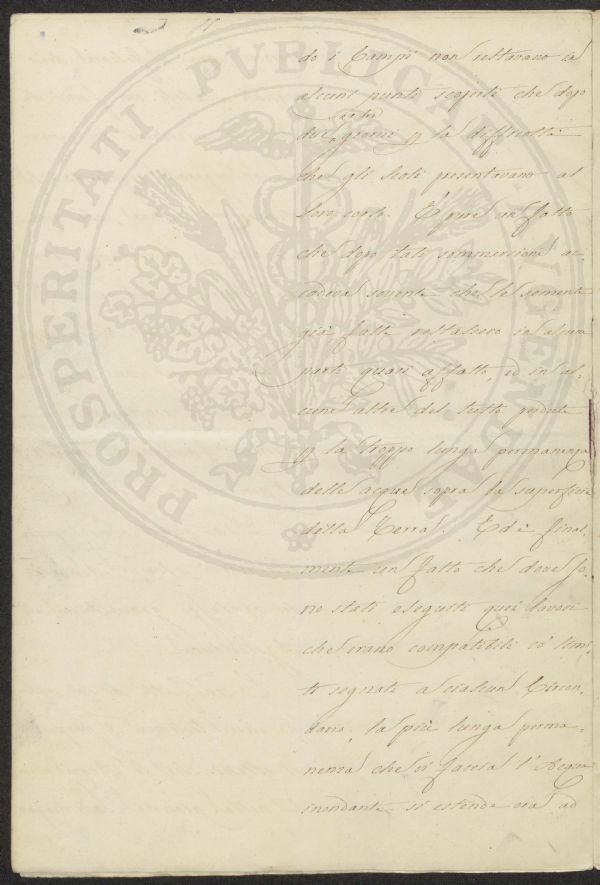 do i Campi non restavano in
alcuni punti scoperti che dopo
due, o tre giorni p la difficoltà
che gli Scoli presentavano al
loro corso. E' pure un fatto
che dopo tali sommersioni ac-
cadeva sovente che le sementi
già fatte restassero in alcune
parti quasi affatto, ed in al-
cune altre del tutto perdute
p la troppo lunga permanenza
delle acque sopra la superficie
della Terra. Ed è final-
mente un fatto che dove so-
no stati eseguiti quei lavori
che erano compatibili co' limi-
ti segnati a ciascun Circon-
dario, la più lunga perma-
nenza che vi faccia l'Acqua
inondante si estende ora ad
PROSPERITATI PUBLICAE AUGENDAE